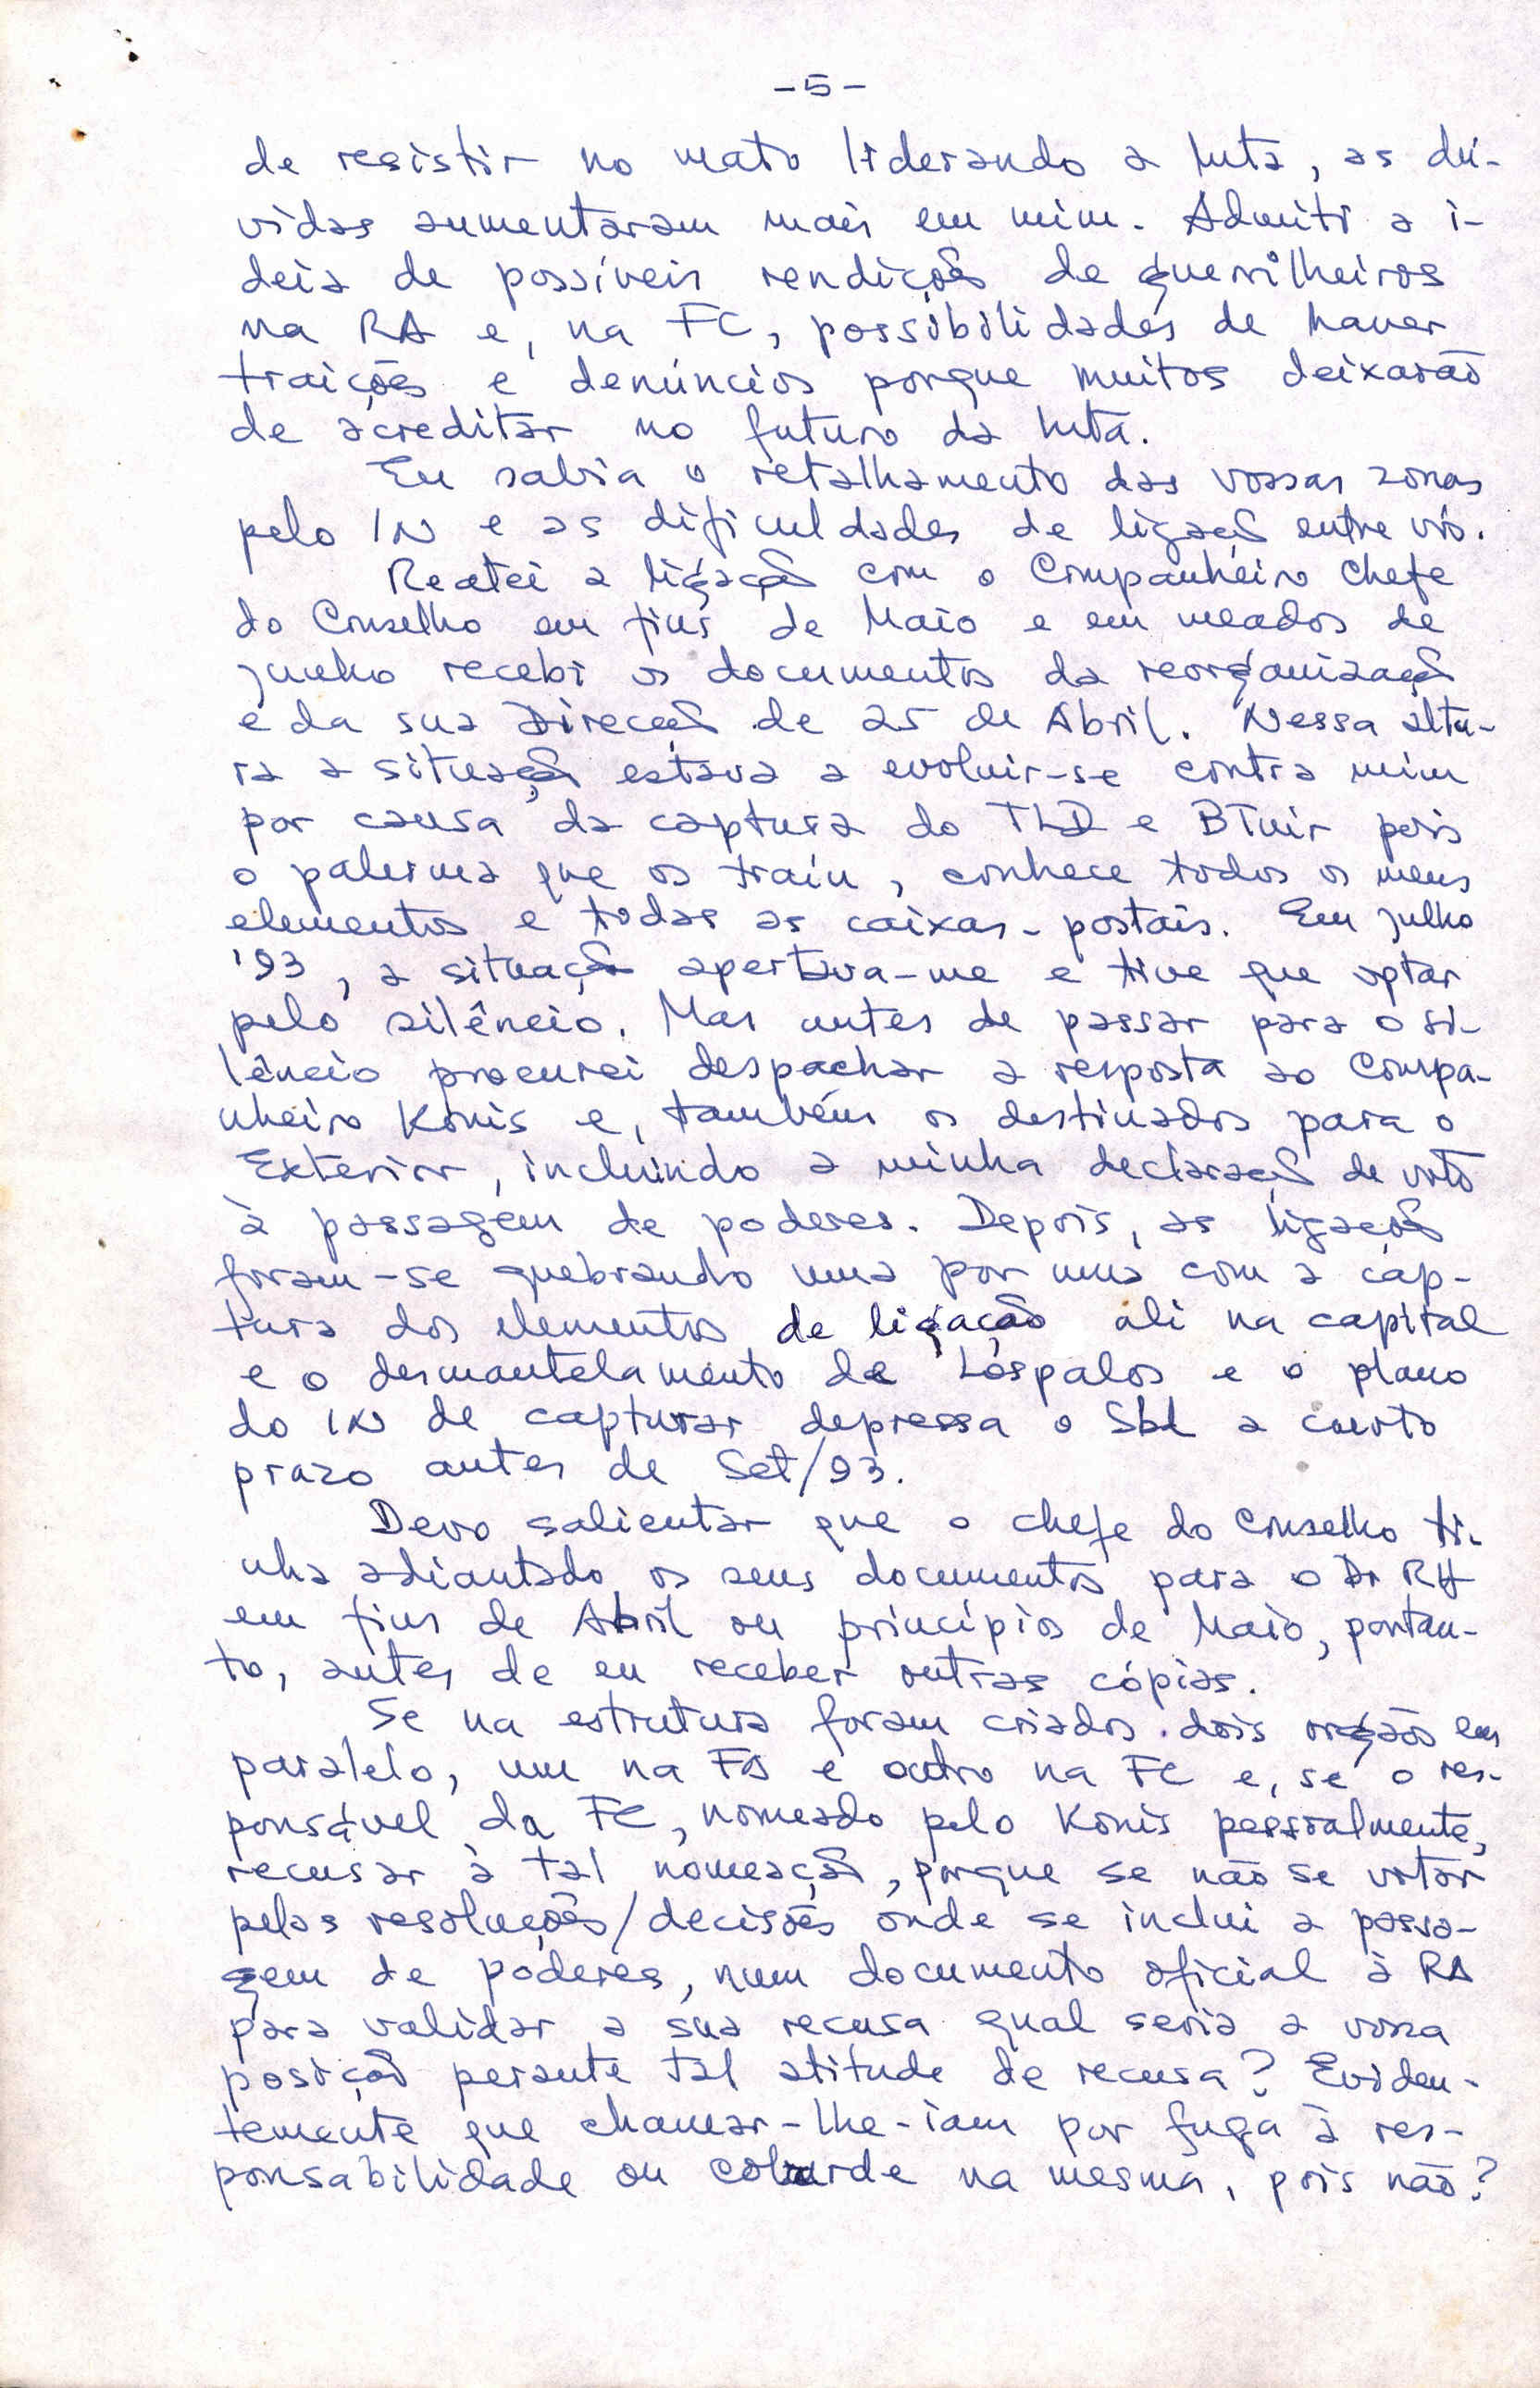 -5-
de resistir no mato liderando a luta, as dú-
vidas aumentaram mais em mim. Admiti a i-
deia de possíveis rendições de guerrilheiros
na RA e, na FC, possibilidades de haver
traições e denúncios porque muitos deixarão
de acreditar no futuro da luta.
Eu sabia o retalhamento das vossas zonas
pelo IN e as dificuldades de ligação entre vós.
Reatei a ligação com o Companheiro Chefe
do Conselho em fins de Maio e em meados de
junho recebi os documentos da reorganização
e da sua Direcção de 25 de Abril. Nessa altu-
ra a situação estava a evoluir-se contra mim
por causa da captura do TLD e BTuir pois
o palerma que os traiu, conhece todos os meus
elementos e todas as caixas-postais. Em julho
'93, a situação apertava-me e tive que optar
pelo silêncio. Mas antes de passar para o si-
lêncio procurei despachar a resposta ao Compa-
nheiro Konis e, também os destinados para o
Exterior, incluindo a minha declaração de voto
à passagem de poderes. Depois, as ligações
foram-se quebrando uma por uma com a cap-
tura dos elementos de ligação ali na capital
e o desmantelamento de Lóspalos e o plano
do IN de capturar depressa o Sbl a curto
prazo antes de Set/93.
Devo salientar que o chefe do Conselho ti-
nha adiantado os seus documentos para o Dr RH
em fins de Abril ou princípios de Maio, portan-
to, antes de eu receber outras cópias.
Se na estrutura foram criados dois orgãos em
paralelo, um na FA e outro na FC e, se o res-
ponsável da FC, nomeado pelo Konis pessoalmente,
recusar à tal nomeação, porque se não se votar
pelas resoluções/decisões onde se inclui a passa-
gem de poderes, num documento oficial à RA
para validar a sua recusa qual seria a vossa
posição perante tal atitude de recusa? Eviden-
temente que chamar-lhe-iam por fuga à res-
ponsabilidade ou cobarde na mesma, pois não?